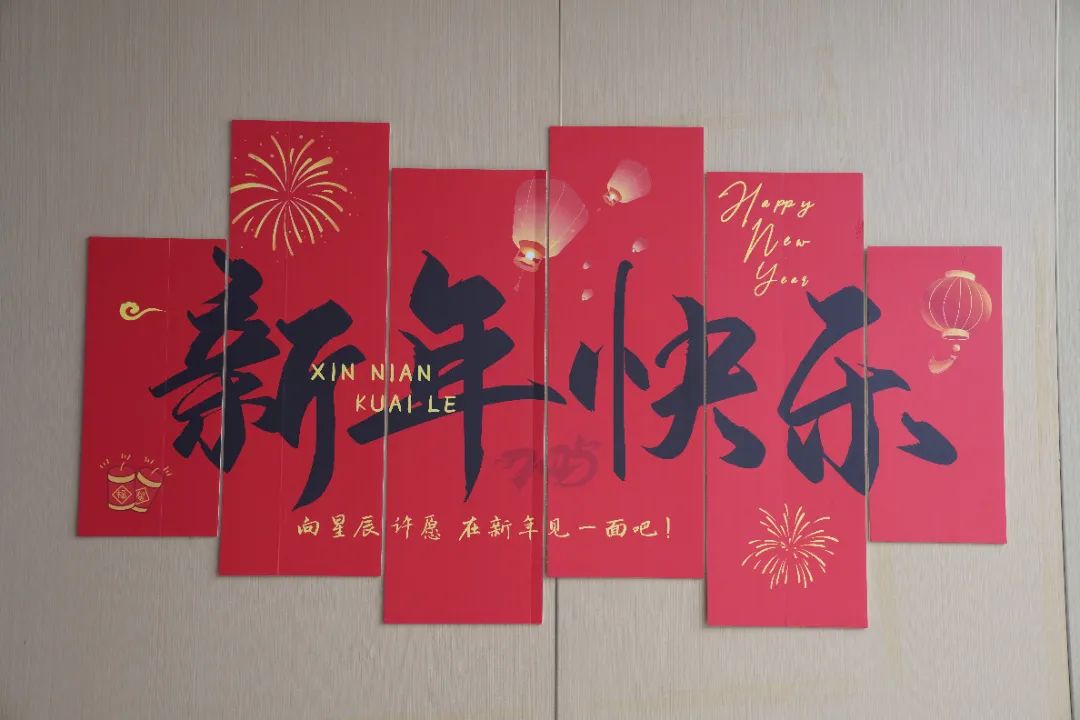 新年快乐
XIN NIAN
KUAI LE
Happy
New
Year
2025
向星辰许愿 在新年见一面吧!
福